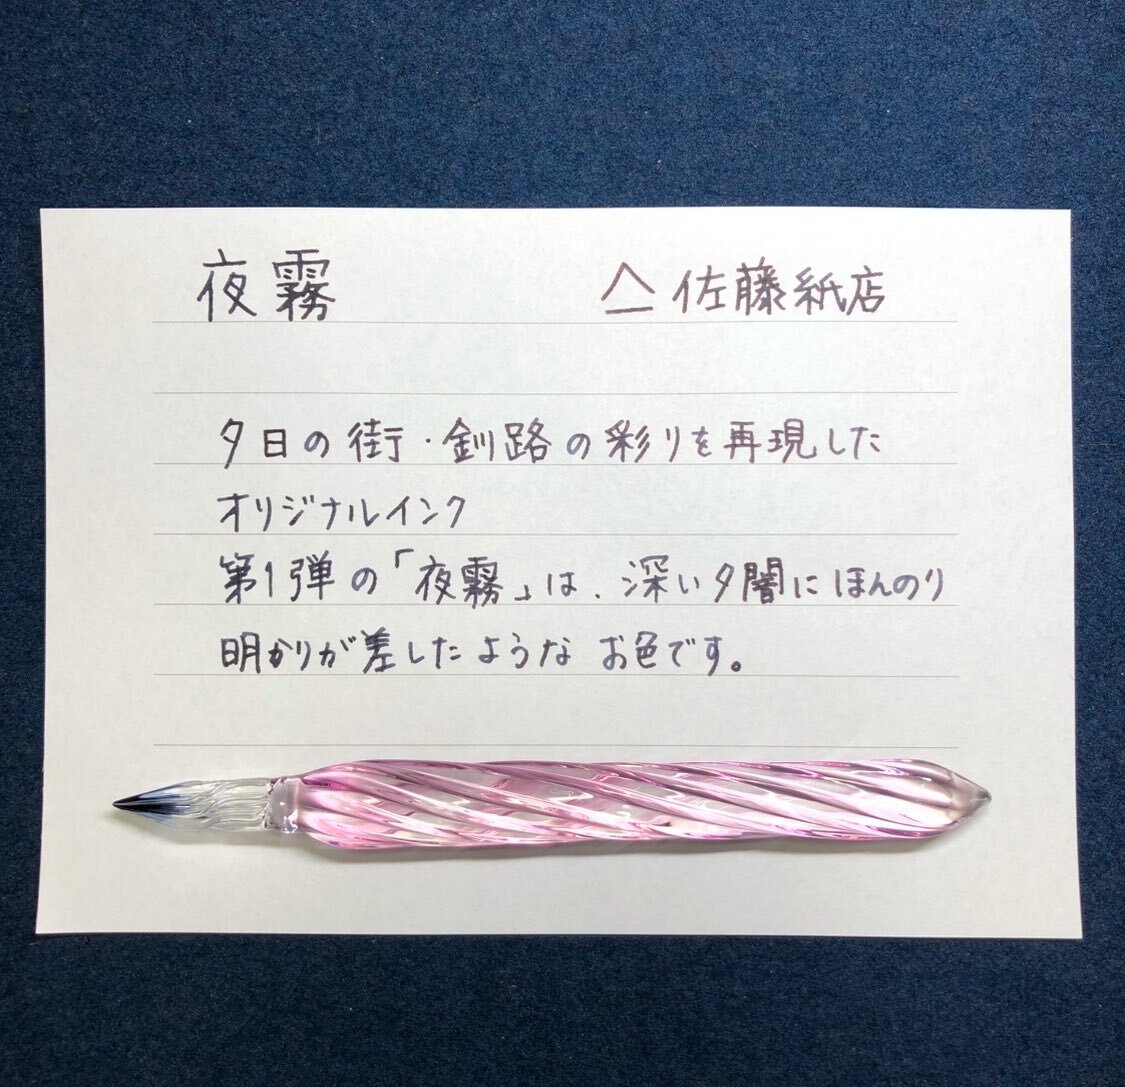 夜霧 △佐藤紙店
夕日の街・釧路の彩りを再現した
オリジナルインク
第1弾の「夜霧」は、深い夕闇にほんのり
明かりが差したような お色です。